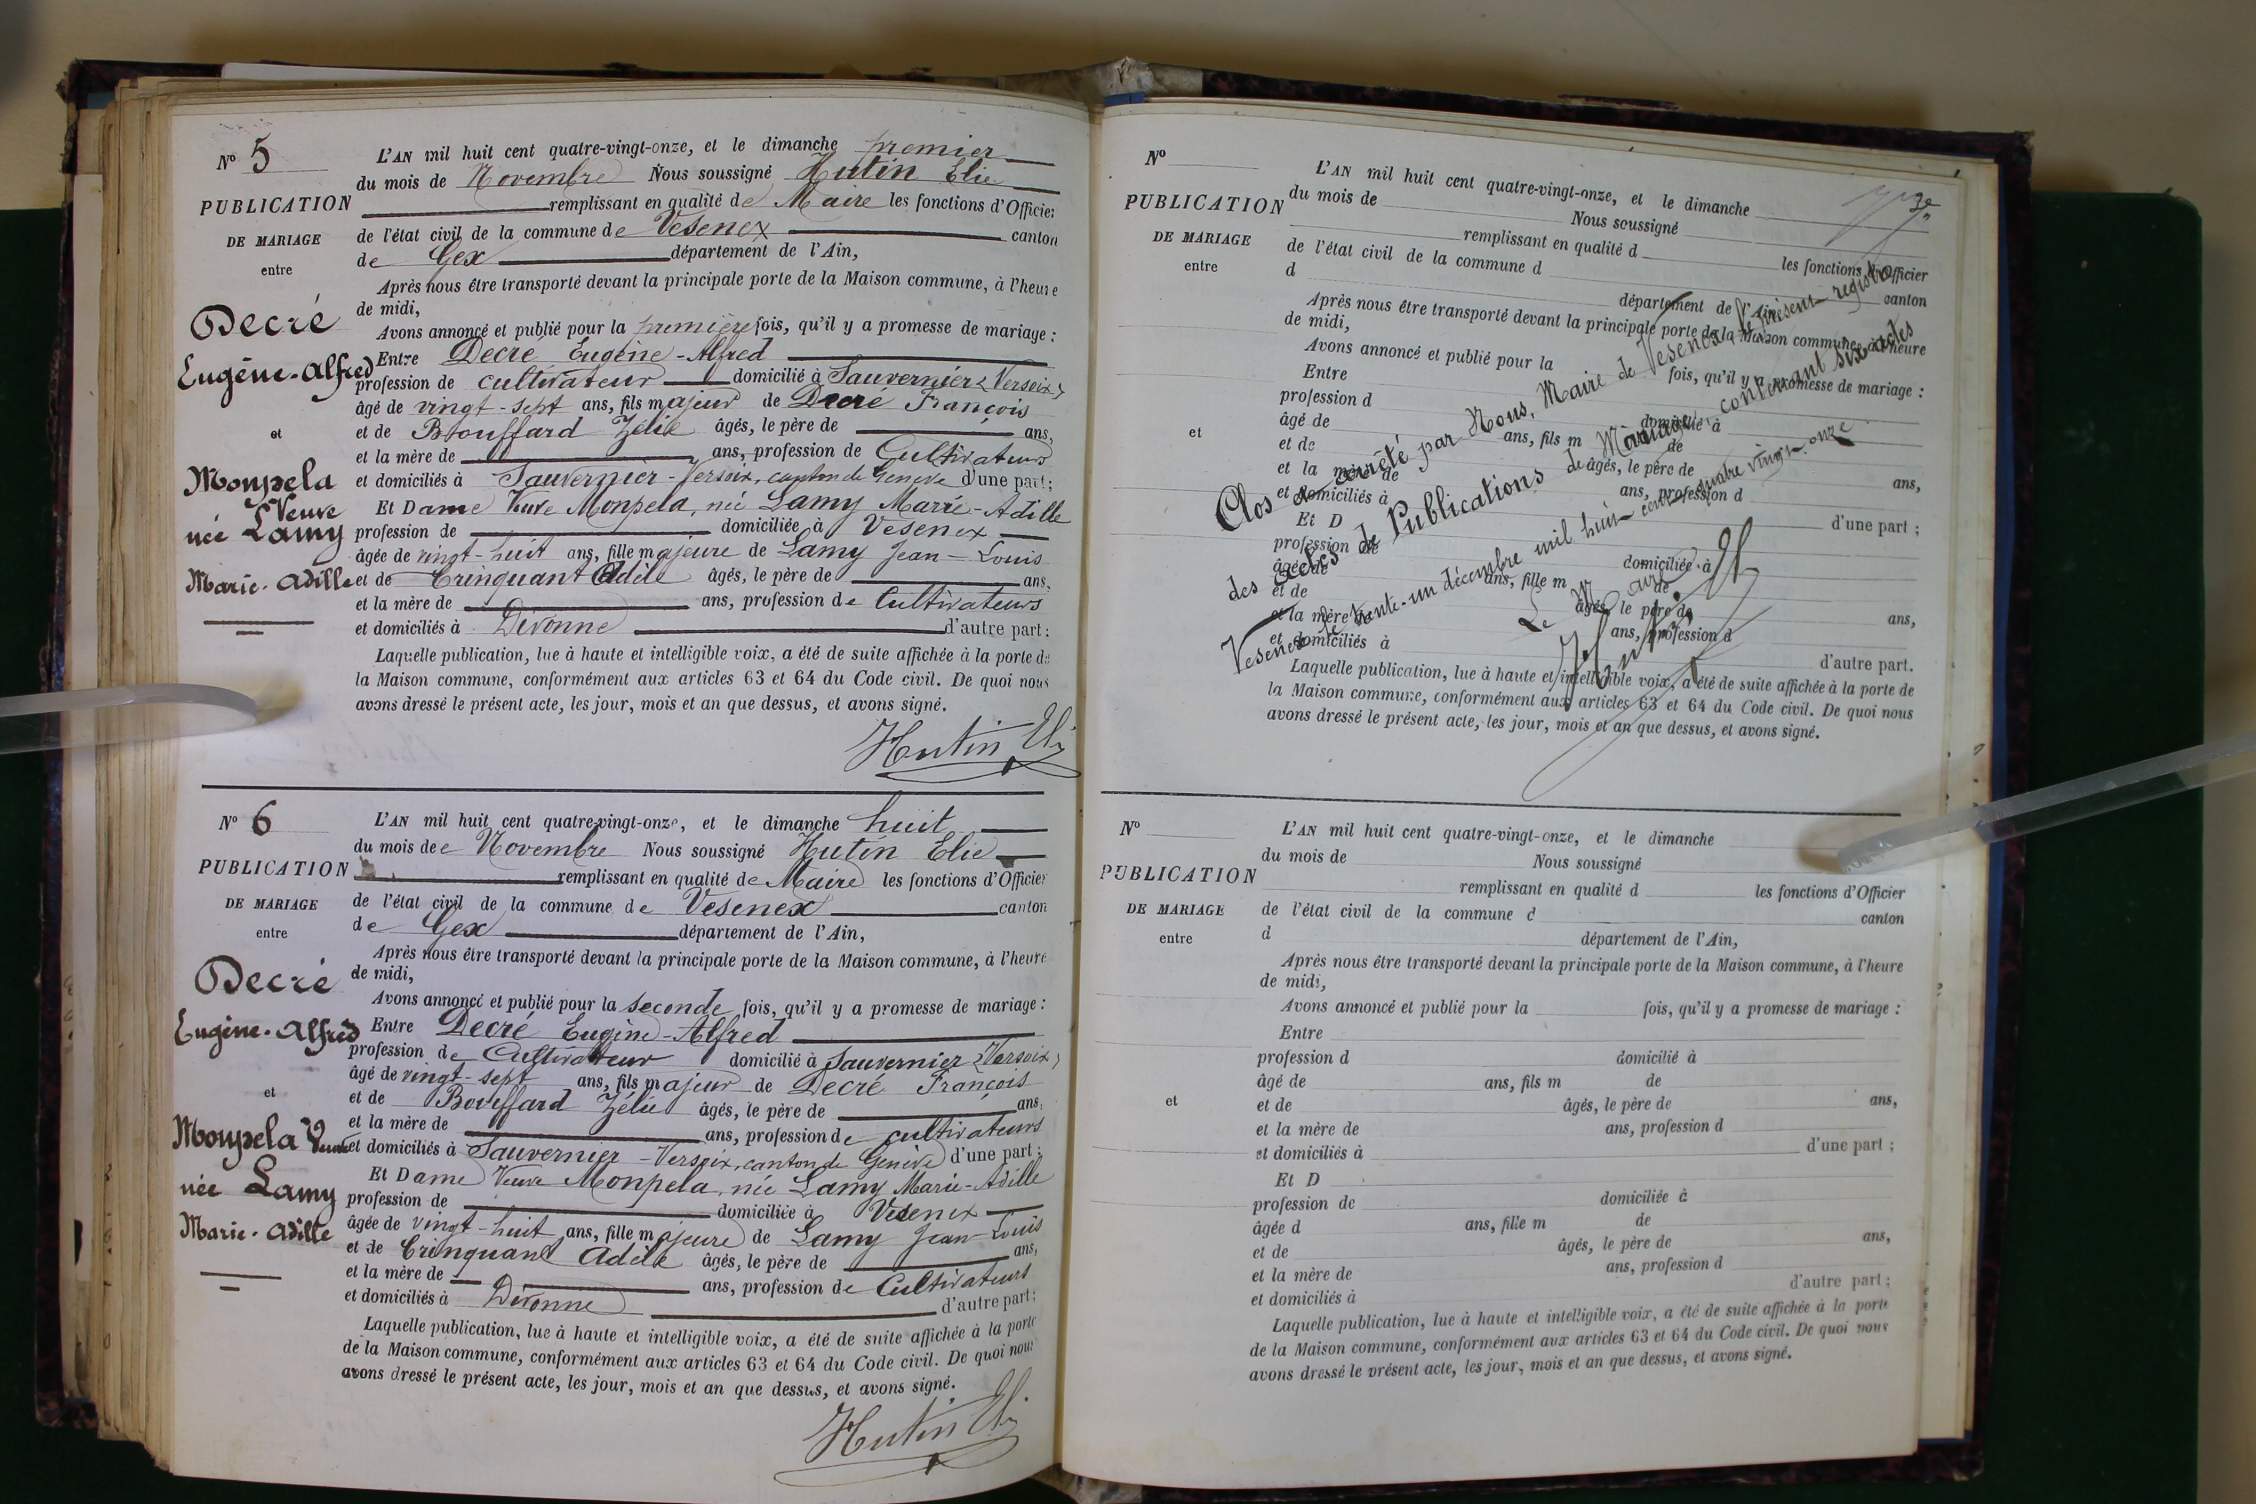 N° 5
PUBLICATION
DE MARIAGE
entre
Decré
Eugène-Alfred
et
Monpela
Veuve
née Lamy
Marie-Adille
L'AN mil huit cent quatre-vingt-onze, et le dimanche premier
du mois de Novembre Nous soussigné Hutin Elie
remplissant en qualité de Maire les fonctions d'Officier
de l'état civil de la commune de Vesenex canton
de Gex département de l'Ain,
Après nous être transporté devant la principale porte de la Maison commune, à l'heure
de midi,
Avons annoncé et publié pour la première fois, qu'il y a promesse de mariage :
Entre Decré Eugène-Alfred
profession de cultivateur domicilié à Sauvernier (Versoix)
âgé de vingt-sept ans, fils majeur de Decré François
et de Bouffard Zélie âgés, le père de ans,
et la mère de ans, profession de Cultivateurs
et domiciliés à Sauvernier-Versoix, canton de Genève d'une part;
Et Dame Veuve Monpela, née Lamy Marie-Adille
profession de domiciliée à Vesenex
âgée de vingt-huit ans, fille majeure de Lamy Jean-Louis
et de Crinquant Adèle âgés, le père de ans,
et la mère de ans, profession de Cultivateurs
et domiciliés à Divonne d'autre part:
Laquelle publication, lue à haute et intelligible voix, a été de suite affichée à la porte de
la Maison commune, conformément aux articles 63 et 64 du Code civil. De quoi nous
avons dressé le présent acte, les jour, mois et an que dessus, et avons signé.
Hutin Eli
N° 6
PUBLICATION
DE MARIAGE
entre
Decré
Eugène-Alfred
et
Monpela Veuve
née Lamy
Marie-Adille
L'AN mil huit cent quatre-vingt-onze, et le dimanche huit
du mois de e Novembre Nous soussigné Hutin Elie
remplissant en qualité de Maire les fonctions d'Officier
de l'état civil de la commune de Vesenex canton
de Gex département de l'Ain,
Après nous être transporté devant la principale porte de la Maison commune, à l'heure
de midi,
Avons annoncé et publié pour la seconde fois, qu'il y a promesse de mariage :
Entre Decré Eugène-Alfred
profession de Cultivateur domicilié à Sauvernier (Versoix)
âgé de vingt-sept ans, fils majeur de Decré François
et de Bouffard Zélie âgés, le père de ans,
et la mère de ans, profession de cultivateurs
et domiciliés à Sauvernier-Versoix, canton de Genève d'une part;
Et Dame Veuve Monpela, née Lamy Marie-Adille
profession de domiciliée à Vesenex
âgée de vingt-huit ans, fille majeure de Lamy Jean-Louis
et de Crinquant Adèle âgés, le père de ans,
et la mère de ans, profession de Cultivateurs
et domiciliés à Divonne d'autre part:
Laquelle publication, lue à haute et intelligible voix, a été de suite affichée à la porte
de la Maison commune, conformément aux articles 63 et 64 du Code civil. De quoi nous
avons dressé le présent acte, les jour, mois et an que dessus, et avons signé.
Hutin Eli
N°
PUBLICATION
DE MARIAGE
entre
et
L'AN mil huit cent quatre-vingt-onze, et le dimanche
du mois de Nous soussigné
remplissant en qualité d les fonctions d'Officier
de l'état civil de la commune d canton
d département de l'Ain,
Après nous être transporté devant la principale porte de la Maison commune, à l'heure
de midi,
Avons annoncé et publié pour la fois, qu'il y a promesse de mariage :
Entre
profession d domicilié à
âgé de ans, fils m de
et de âgés, le père de ans,
et la mère de ans, profession d
et domiciliés à d'une part ;
Et D
profession de domiciliée à
âgée de ans, fille m de
et de âgés, le père de ans,
et la mère ans, profession d
et domiciliés à d'autre part.
Laquelle publication, lue à haute et intelligible voix, a été de suite affichée à la porte de
la Maison commune, conformément aux articles 63 et 64 du Code civil. De quoi nous
avons dressé le présent acte, les jour, mois et an que dessus, et avons signé.
Clos et arrêté par Nous, Maire de Vesenex, le présent registre
des actes de Publications de Mariage, contenant six actes
Vesenex le trente-un décembre mil huit cent quatre vingt-onze
Le Maire
Hutin Eli
N°
PUBLICATION
DE MARIAGE
entre
et
L'AN mil huit cent quatre-vingt-onze, et le dimanche
du mois de Nous soussigné
remplissant en qualité d les fonctions d'Officier
de l'état civil de la commune d canton
d département de l'Ain,
Après nous être transporté devant la principale porte de la Maison commune, à l'heure
de midi,
Avons annoncé et publié pour la fois, qu'il y a promesse de mariage :
Entre
profession d domicilié à
âgé de ans, fils m de
et de âgés, le père de ans,
et la mère de ans, profession d
et domiciliés à d'une part ;
Et D
profession de domiciliée à
âgée d ans, fille m de
et de âgés, le père de ans,
et la mère de ans, profession d
et domiciliés à d'autre part ;
Laquelle publication, lue à haute et intelligible voix, a été de suite affichée à la porte
de la Maison commune, conformément aux articles 63 et 64 du Code civil. De quoi nous
avons dressé le présent acte, les jour, mois et an que dessus, et avons signé.